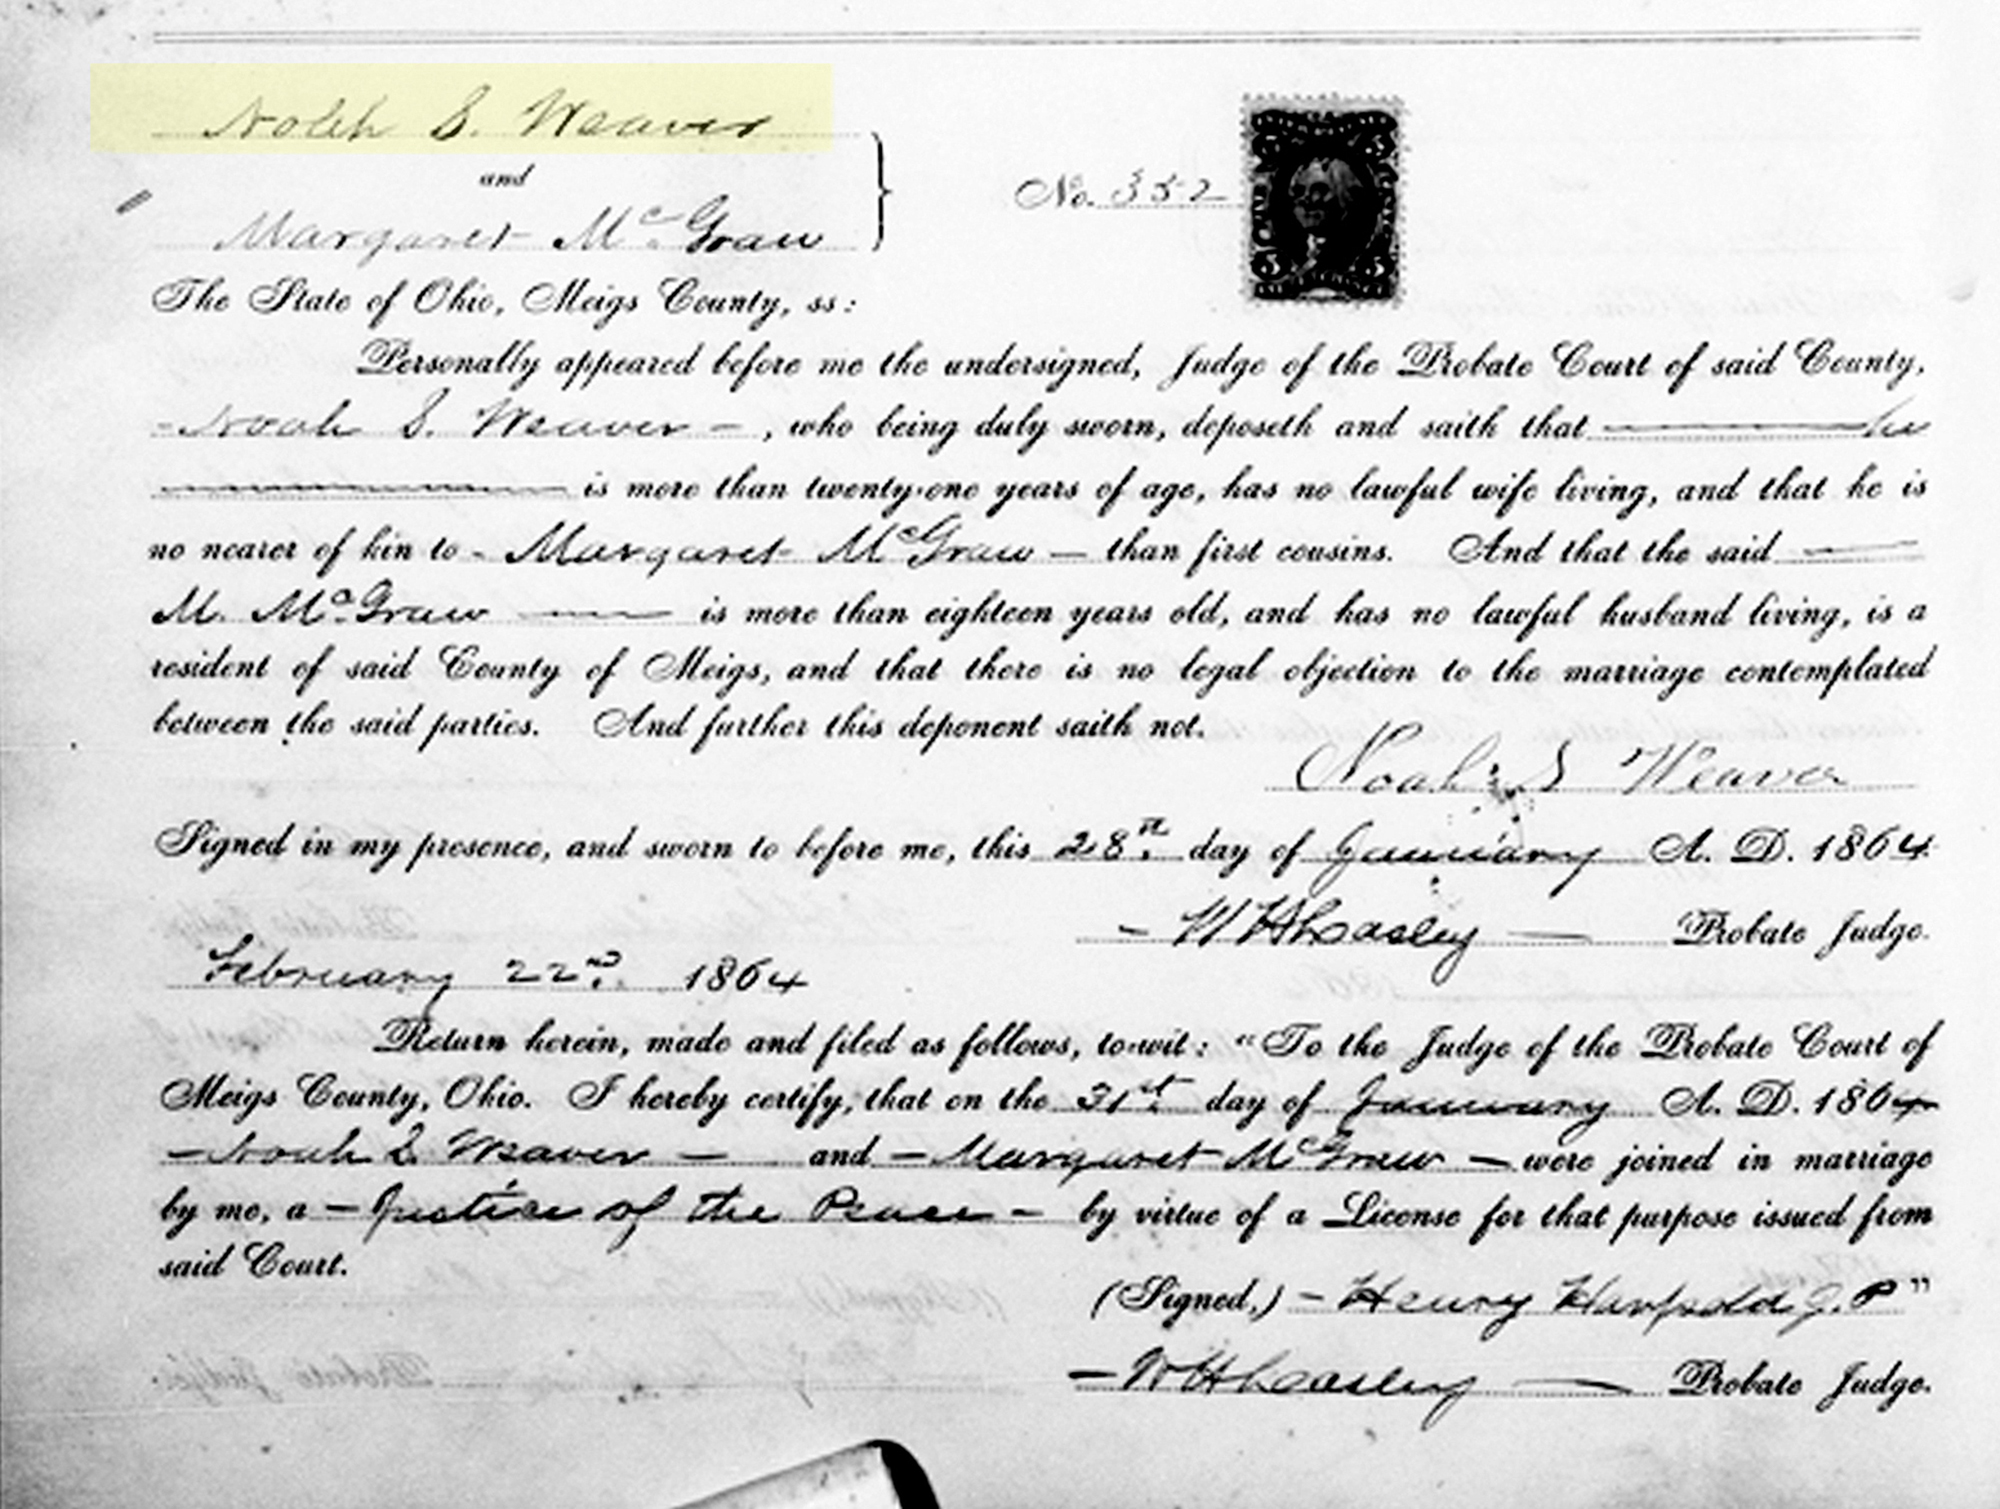 Noah S. Weaver
and
Margaret McGraw
No. 352
5 5
5 5
The State of Ohio, Meigs County, ss:
Personally appeared before me the undersigned, Judge of the Probate Court of said County,
- Noah S. Weaver - , who being duly sworn, deposeth and saith that he
is more than twenty-one years of age, has no lawful wife living, and that he is
no nearer of kin to - Margaret McGraw - than first cousins. And that the said
M. McGraw is more than eighteen years old, and has no lawful husband living, is a
resident of said County of Meigs, and that there is no legal objection to the marriage contemplated
between the said parties. And further this deponent saith not.
Noah S Weaver
Signed in my presence, and sworn to before me, this 28th day of January A. D. 1864
- W H Lasley - Probate Judge.
February 22nd. 1864
Return herein, made and filed as follows, to-wit: "To the Judge of the Probate Court of
Meigs County, Ohio. I hereby certify, that on the 31st day of January A. D. 1864
- Noah S. Weaver - and - Margaret McGraw - were joined in marriage
by me, a - Justice of the Peace - by virtue of a License for that purpose issued from
said Court.
(Signed,) - Henry Harpold J. P"
- W H Lasley - Probate Judge.